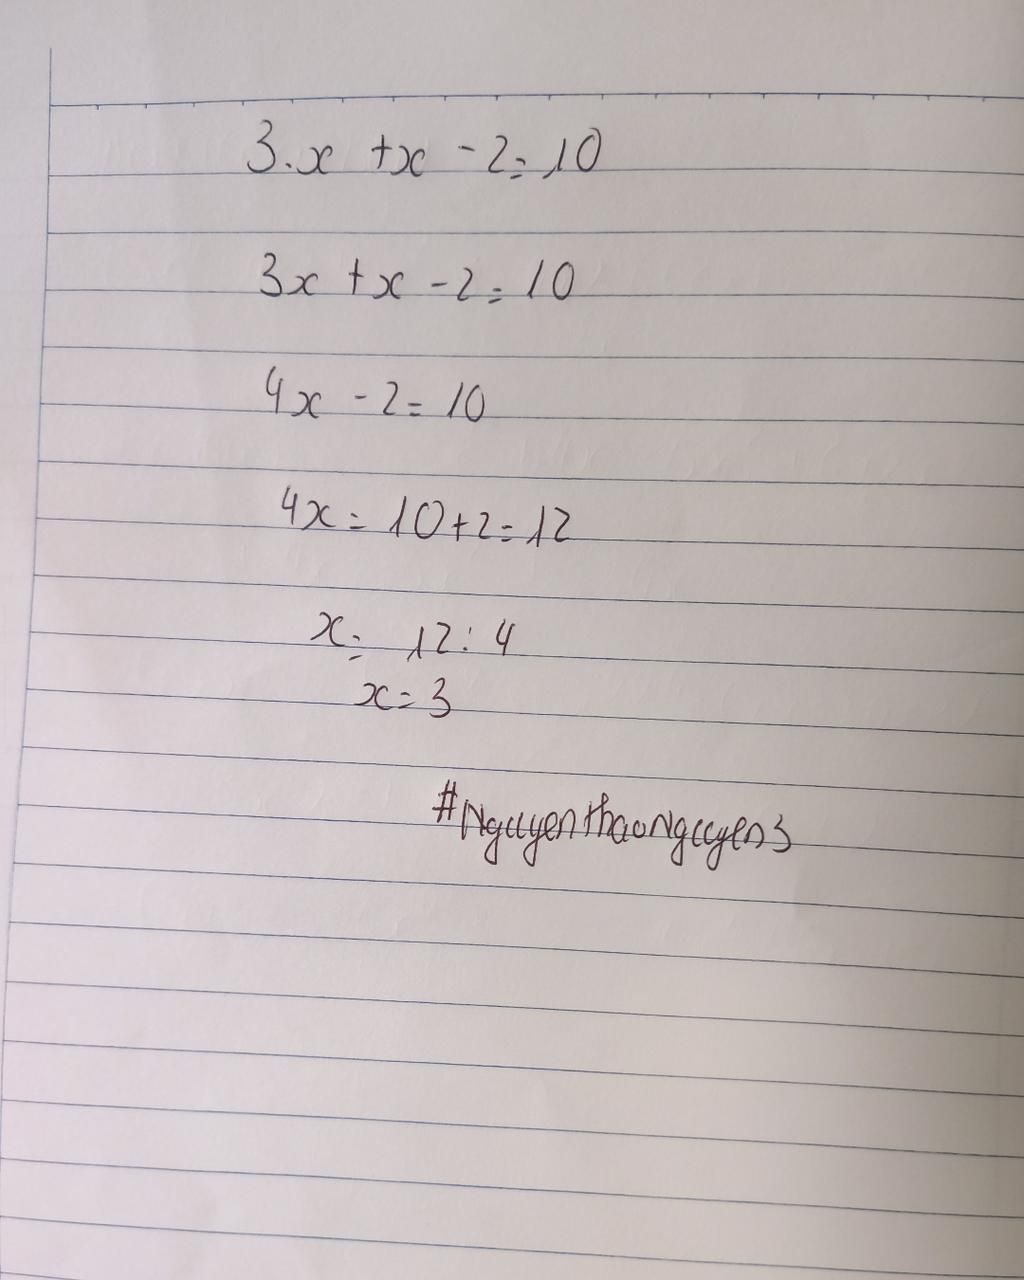 3.x +x - 2 = 10
3x +x - 2 = 10
4x - 2 = 10
4x = 10+2 = 12
x = 12 : 4
x = 3
#NguyenthaoNguyen3